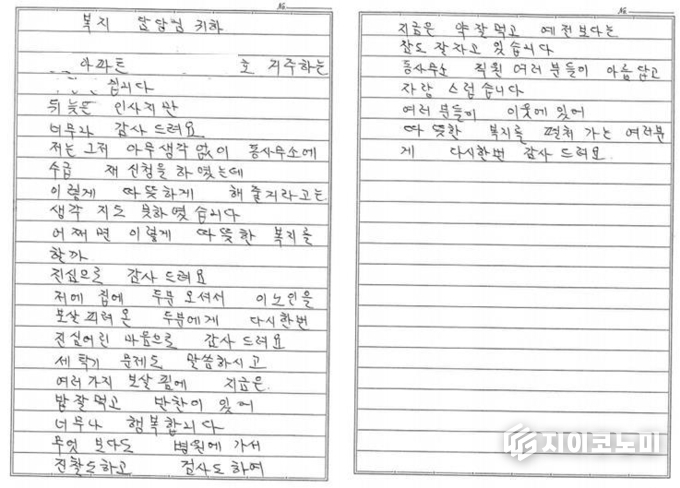 №
복지 담당님 귀하
아파트 호 거주하는
입니다
뒤늦은 인사지만
너무나 감사 드려요
저는 그저 아무생각 없이 동사무소에
수급 재 신청을 하였는데
이렇게 따뜻하게 해 줄지라고는
생각 지도 못하였습니다
어쩌면 이렇게 따뜻한 복지를
할까
진심으로 감사 드려요
저에 집에 두분 오셔서 이노인을
보살피려 온 두분에게 다시한번
진심어린 마음으로 감사 드려요
세탁기 문제도 말씀하시고
여러가지 보살핌에 지금은
밥잘먹고 반찬이 있어
너무나 행복합니다
무엇 보다도 병원에 가서
진찰도하고 검사도하여
№
지금은 약잘먹고 예전보다는
잠도 잘자고 있습니다
동사무소 직원 여러분들이 아름답고
자랑 스럽습니다
여러분들이 이웃에 있어
따뜻한 복지를 펼쳐 가는 여러분
게 다시한번 감사 드려요
지이코노미